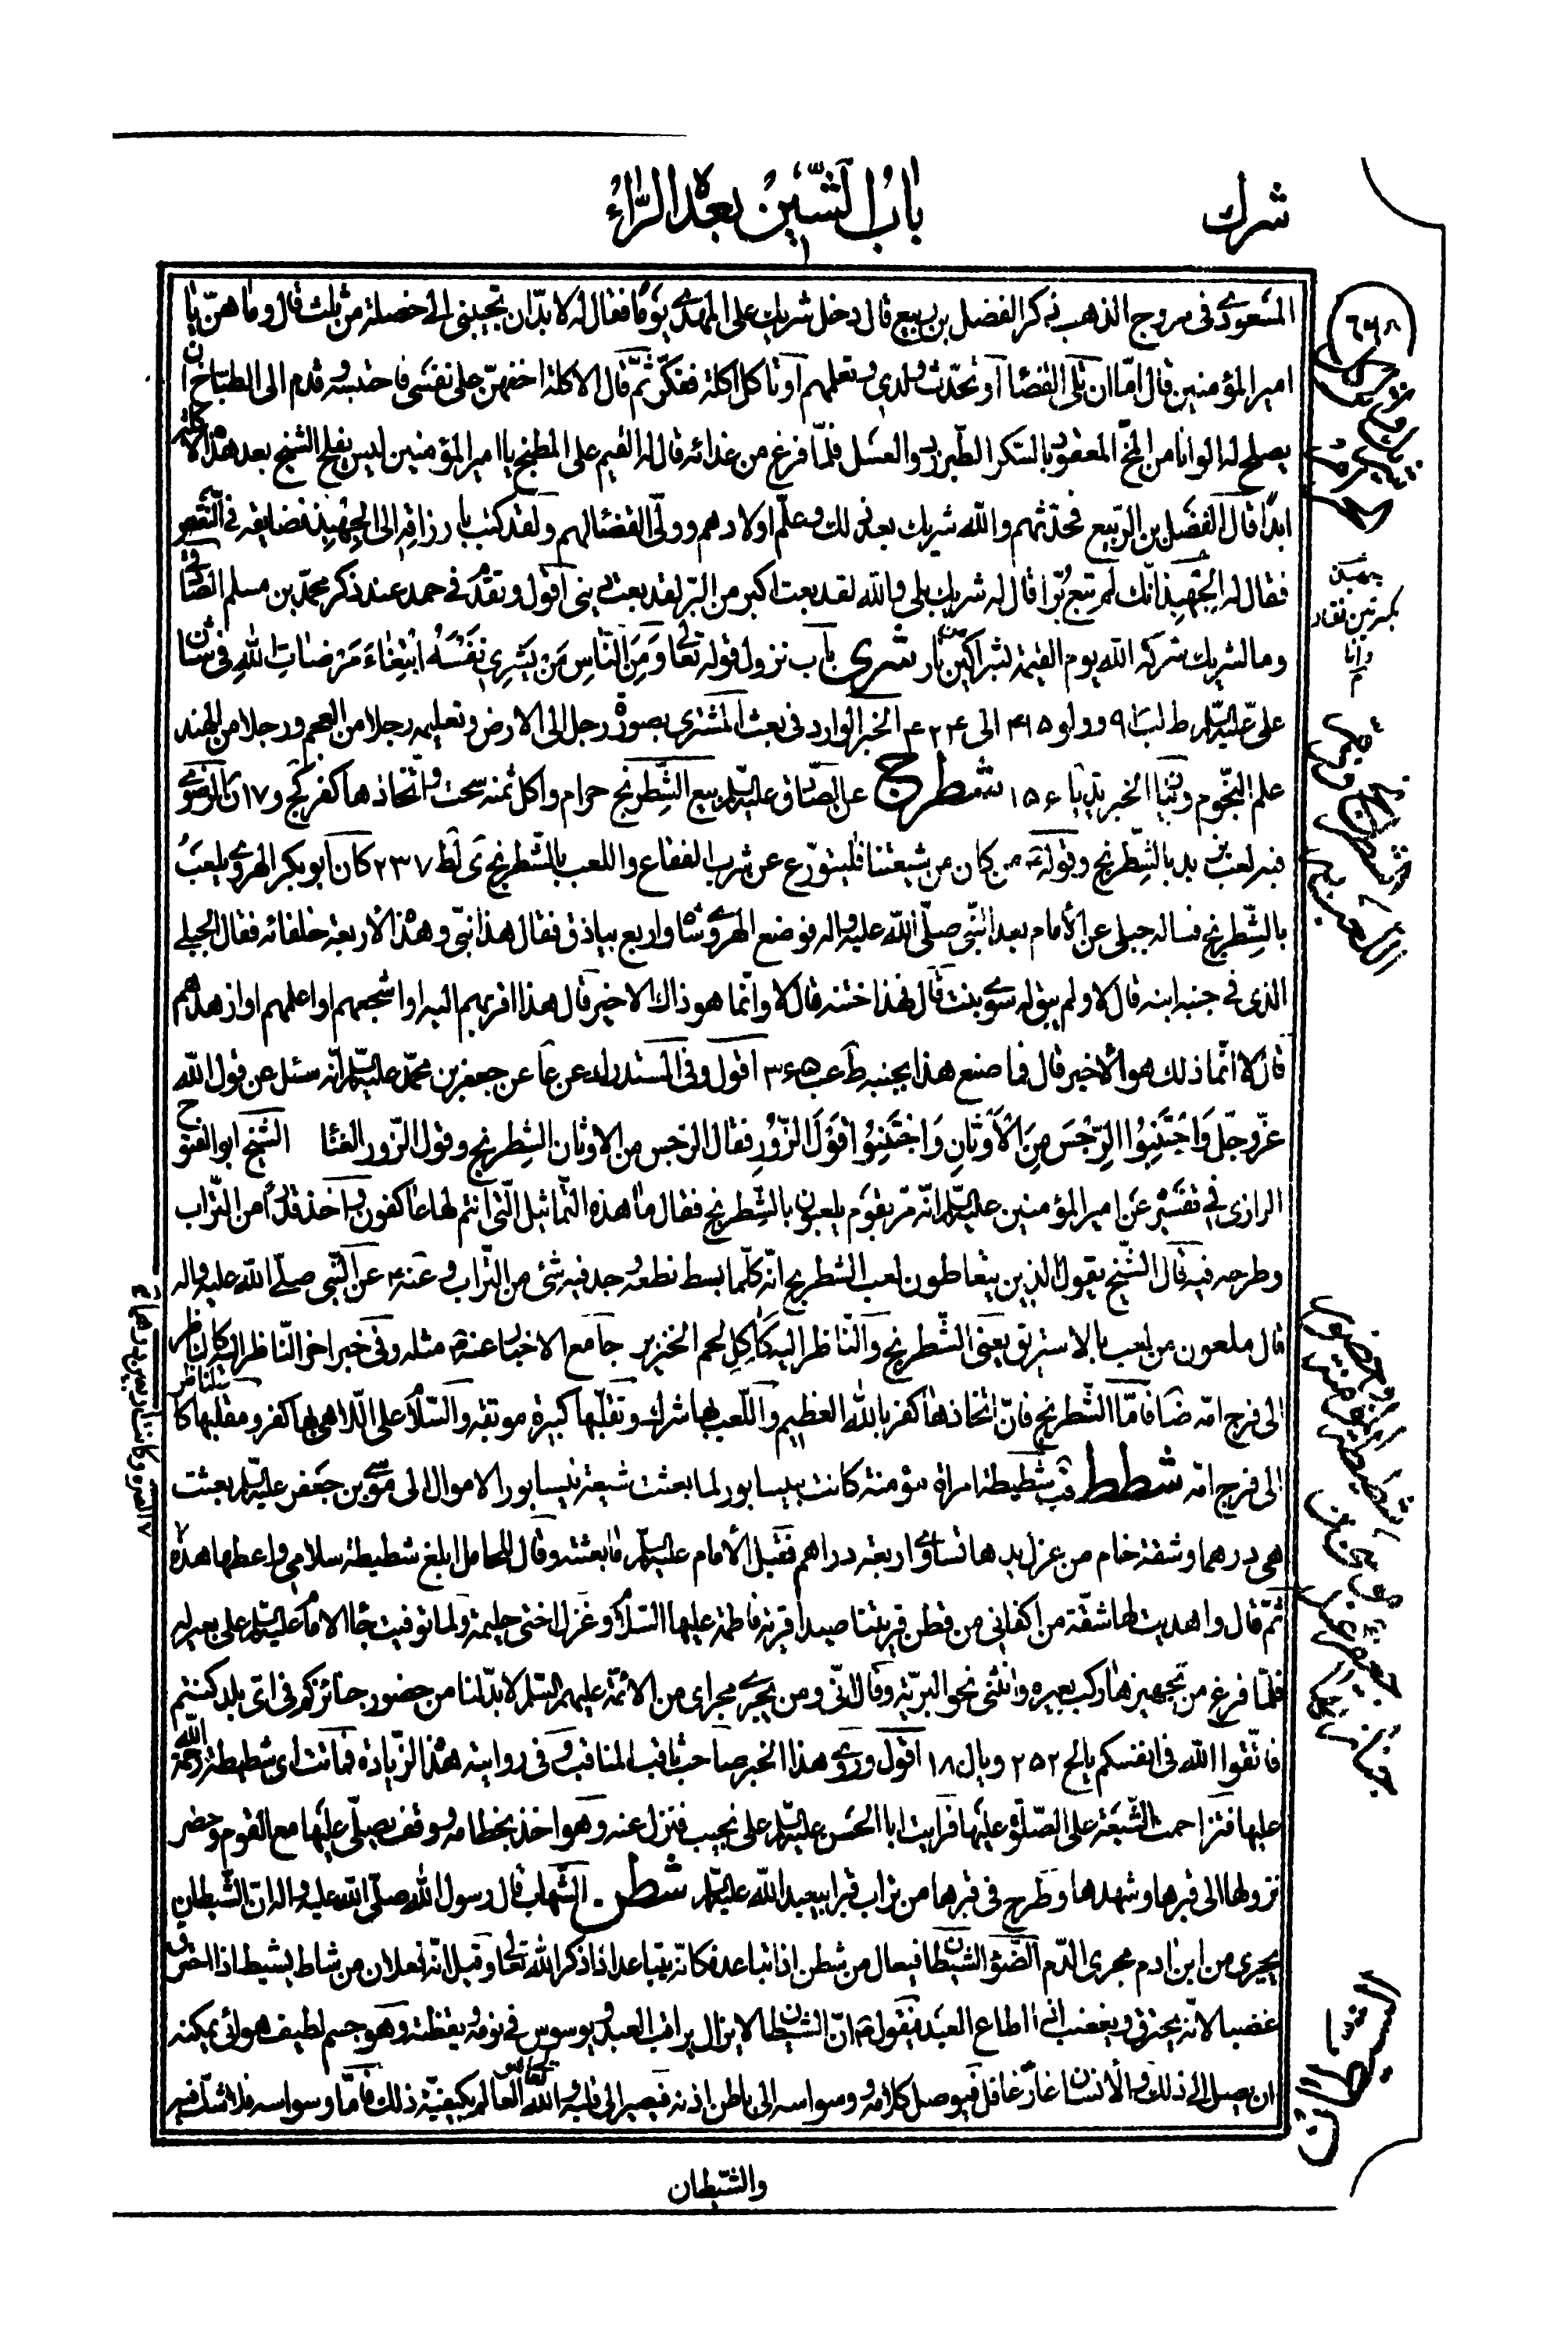 شرك
باب الشين بعد الراء
٦٩٨
المسعودي في مروج الذهب ذكر الفضل بن ربيع قال دخل شريك على المهدي يوما فقال له لا بد ان تجيبني الى خصلة من ثلث قال وما هن يا
امير المؤمنين قال اما ان تلي القضاء او تحدث ولدي وتعلمهم او تاكل اكلة ففكر ثم قال الاكلة اخفهن على نفسي فاحتبسه وقدم الى الطباخ ان
يصلح له الوانا من المخ المعقود بالسكر الطبرزد والعسل فلما فرغ من غدائه قال له القيم على المطبخ يا امير المؤمنين ليس يفلح الشيخ بعد هذه الاكلة
ابدا قال الفضل بن الربيع فحدثهم والله شريك بعد ذلك وعلم اولادهم وولي القضاء لهم ولقد كتب بارزاقه الى الجهبذ فضايقه في النقص
فقال له الجهبذ انك لم تبع برا قال له شريك بلى والله لقد بعت اكبر من البر لقد بعت ديني اقول وتقدم في حمد عند ذكر محمد بن مسلم الصادق
وما لشريك شركه الله يوم القيمة بشراكين من نار شرى باب نزول قوله تعالى ومن الناس من يشري نفسه ابتغاء مرضات الله في شان
علي عليه السلم ط لب ٩ وولو ٤١٥ الى ٤٢٤ الخبر الوارد في بعث المشتري بصورة رجل الى الارض وتعليمه رجلا من العجم ورجلا من الهند
علم النجوم وبيان الخبر يد يا ١٥٦ شطرج عن الصادق عليه السلم بيع الشطرنج حرام واكل ثمنه سحت واتخاذها كفر كج و ١٧ ن الرضوي
فيه لعب يزيد بالشطرنج وقوله ع من كان من شيعتنا فليتورع عن شرب الفقاع واللعب بالشطرنج ى لط ٢٣٧ كان ابو بكر الهروي يلعب
بالشطرنج فساله جبلي عن الامام بعد النبي صلى الله عليه واله فوضع الهروي شاه واربع بياذق فقال هذا نبي وهذه الاربعة خلفائه فقال الجبلي
الذي في جنبه ابنه قال لا ولم يبق له سوى بنت قال فهذا ختنه قال لا وانما هو ذاك الاخير قال هذا اقربهم اليه او اشجعهم او اعلمهم او ازهدهم
قال لا انما ذلك هو الاخير قال فما صنع هذا بجنبه ط عب ٣٦٥ اقول وفي المستدرك عن عا عن جعفر بن محمد عليه السلم انه سئل عن قول الله
عز وجل واجتنبوا الرجس من الاوثان واجتنبوا قول الزور فقال الرجس من الاوثان الشطرنج وقول الزور الغناء الشيخ ابو الفتوح
الرازي في تفسيره عن امير المؤمنين عليه السلم انه مر بقوم يلعبون بالشطرنج فقال ما هذه التماثيل التي انتم لها عاكفون واخذ قدرا من التراب
وطرحه فيه قال الشيخ يقول الذين يتعاطون لعب الشطرنج انه كلما بسط نطعه وجد فيه شئ من التراب وعنه ع عن النبي صلى الله عليه واله
قال ملعون من لعب بالاستريق يعني الشطرنج والناظر اليه كاكل لحم الخنزير جامع الاخبار عنه ص مثله وفي خبر اخر الناظر اليه كالناظر
الى فرج امه ضا فاما الشطرنج فان اتخاذها كفر بالله العظيم واللعب بها شرك وتقلبها كبيرة موبقة والسلام على اللاهي بها كفر ومقلبها كالناظر
الى فرج امه شطط قب شطيطة امراة مؤمنة كانت بنيسابور لما بعثت شيعة نيسابور الاموال الى موسى بن جعفر عليه السلم بعثت
هي درهما وشقة خام من غزل يدها تساوي اربعة دراهم فقبل الامام عليه السلم ما بعثته وقال للحامل ابلغ شطيطة سلامي واعطها هذه
ثم قال واهديت لها شقة من اكفاني من قطن قريتنا صيدا قرية فاطمة عليها السلام وغزل اختي حليمة ولما توفيت جاء الامام عليه السلم على بعير له
فلما فرغ من تجهيزها ركب بعيره وانثنى نحو البرية وقال اني ومن يجري مجراي من الائمة عليهم السلم لا بد لنا من حضور جنائزكم في اي بلد كنتم
فاتقوا الله في انفسكم يالح ٢٥٢ ويال ١٨ اقول وروى هذا الخبر صاحب ثاقب المناقب وفي روايته هذه الزيادة فماتت اي شطيطة رحمة الله
عليها فتزاحمت الشيعة على الصلوة عليها فرايت ابا الحسن عليه السلم على نجيب فنزل عنه وهو اخذ بخطامه ووقف يصلي عليها مع القوم وحضر
نزولها الى قبرها وشهدها وطرح في قبرها من تراب قبر ابي عبد الله عليه السلم شطن . الشهاب قال رسول الله صلى الله عليه واله ان الشيطان
يجري من ابن ادم مجرى الدم الضوء الشيطان فيعال من شطن اذا تباعد فكانه يتباعد اذا ذكر الله تعالى وقيل انه فعلان من شاط يشيط اذا احترق
غضبا لانه يحترق ويغضب اذا اطاع العبد فيقول ص ان الشيطان لا يزال يراقب العبد ويوسوس في نومه ويقظته وهو جسم لطيف هوائي يمكنه
ان يصل الى ذلك والانسان غار غافل فيوصل كلامه ووسواسه الى باطن اذنه فيصير الى قلبه والله تعالى العالم بكيفية ذلك فاما وسواسه فلا شك فيه
والشيطان
جهبذ
بمعنى نقاد
ودانا
الشطرنج
واللعب به
الشيطان